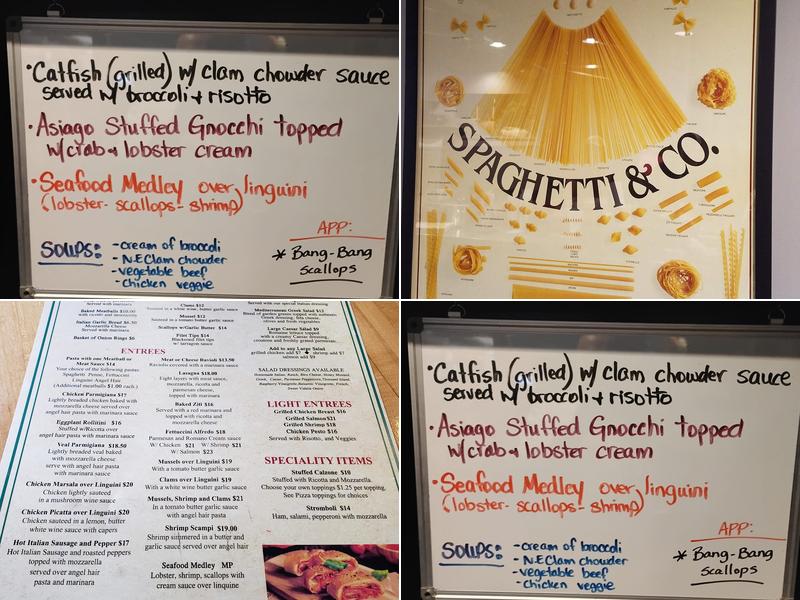 • Catfish (grilled) w/ clam chowder sauce
served w/ broccoli + risotto
• Asiago Stuffed Gnocchi topped
w/crab & lobster cream
• Seafood Medley over linguini
(lobster- scallops- shrimp)
SOUPS:
-cream of broccoli
- N.E Clam chowder
-vegetable beef
-chicken veggie
APP:
* Bang-Bang
Scallops
SPAGHETTI & CO.
Served with marinara
Baked Meatballs $10.00
Italian Garlic Bread $6.50
Mozzarella Cheese
Served with marinara
Basket of Onion Rings $6
ENTREES
Pasta with one Meatball or
Meat Sauce $14
Your choice of the following pastas
Spaghetti Penne, Fettuccini
Linguini Angel Hair
(Additional meatballs $1.00 each)
Chicken Parmigiana $17
Lightly breaded chicken baked with
mozzarella cheese served over
angel hair pasta with marinara sauce
Eggplant Rollitini $16
Stuffed w/Ricotta over
angel hair pasta with marinara sauce
Veal Parmigiana $18.50
Lightly breaded veal baked
with mozzarella cheese
serve with angel hair pasta
with marinara sauce
Chicken Marsala over Linguini $20
Chicken lightly sauteed
in a mushroom wine sauce
Chicken Picatta over Linguini $20
Chicken sauteed in a lemon, butter
white wine sauce with capers
Hot Italian Sausage and Pepper $17
Hot Italian Sausage and roasted peppers
topped with mozzarella
served over angel hair
pasta and marinara
Clams $12
Sauteed in a white wine, butter garlic sauce
Mussel $12
Sauteed in a tomato butter garlic sauce
Scallops w/Garlic Butter $14
Filet Tips $14
Blackened filet tips
w/ tarragon sauce
Meat or Cheese Ravioli $13.50
Raviolis covered with a marinara sauce
Lasagna $18.00
Eight layers with meat sauce,
mozzarella, ricotta and
parmesan cheese,
topped with marinara
Baked Ziti $16
Served with a red marinara and
topped with ricotta and
mozzarella cheese
Fettuccini Alfredo $18
Parmesan and Romano Cream sauce
W/ Chicken $21 W/ Shrimp $21
W/ Salmon $23
Mussels over Linguini $19
With a tomato butter garlic sauce
Clams over Linguini $19
With a white wine butter garlic sauce
Mussels, Shrimp and Clams $21
In a tomato butter garlic sauce
with angel hair pasta
Shrimp Scampi $19.00
Shrimp simmered in a butter and
garlic sauce served over angel hair
Seafood Medley MP
Lobster, shrimp, scallops with
cream sauce over linguine
Served with our special Italian dressing
Mediterranean Greek Salad $12
Large Caesar Salad $9
Romaine lettuce topped
with a creamy Caesar dressing,
croutons and freshly grated parmesan.
Add to any Large Salad
grilled chicken add $7 shrimp add $7
salmon add $9
SALAD DRESSINGS AVAILABLE
LIGHT ENTREES
Grilled Chicken Breast $16
Grilled Salmon $21
Grilled Shrimp $18
Chicken Pesto $16
Served with Risotto, and Veggies
SPECIALITY ITEMS
Stuffed Calzone $10
Stuffed with Ricotta and Mozzarella.
Choose your own toppings $1.25 per topping.
See Pizza toppings for choices
Stromboli $14
Ham, salami, pepperoni with mozzarella
• Catfish (grilled) w/ clam chowder sauce
served w/ broccoli + risotto
• Asiago Stuffed Gnocchi topped
w/crab & lobster cream
• Seafood Medley over linguini
(lobster- scallops- shrimp)
SOUPS:
-cream of broccoli
- N.E Clam chowder
-vegetable beef
-chicken veggie
APP:
* Bang-Bang
Scallops